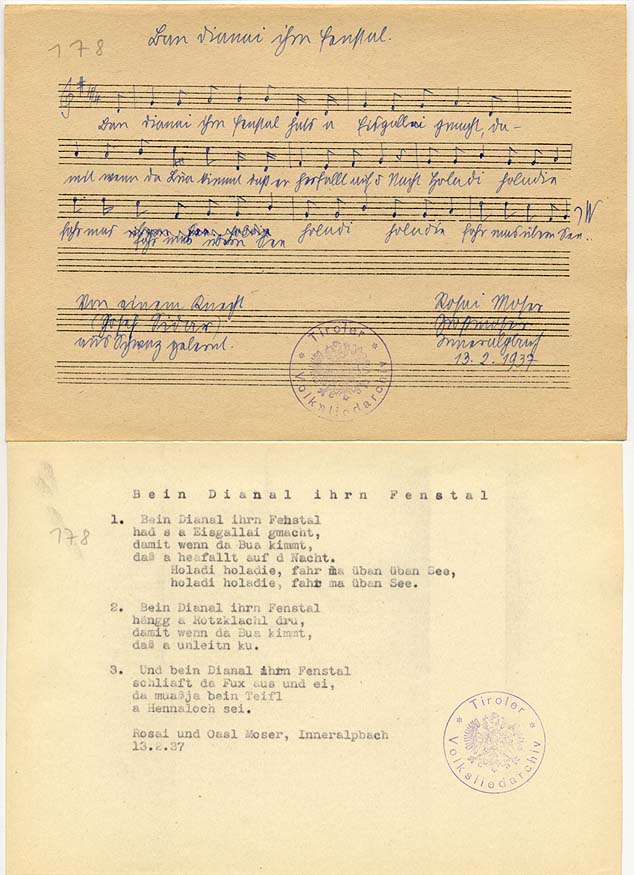 178
Ban dianai ihm Fenstal.
Ban dianai ihm Fenstal hats a Eisgallai gmacht, da-
mit wenn da Bua kimmt daß er herfallt auf d Nacht Holadi holadie
fahr mas
fahr mas übern See holadi holadie fahr mas übern See..
Von einem Knecht
(Josef Sidar)
aus Schwaz gelernt.
Rosai Moser
Inneralpbach
13.2.1937
* Tiroler *
Volksliedarchiv
178
Bein Dianal ihrn Fenstal
1. Bein Dianal ihrn Fehstal
had s a Eisgallai gmacht,
damit wenn da Bua kimmt,
daß a heafallt auf d Nacht.
Holadi holadie, fahr ma üban üban See,
holadi holadie, fahr ma üban See.
2. Bein Dianal ihrn Fenstal
hängg a Rotzklachl dru,
damit wenn da Bua kimmt,
daß a unleitn ku.
3. Und bein Dianal ihrn Fenstal
schliaft da Fux aus und ei,
da muaßja bein Teifl
a Hennaloch sei.
Rosai und Oasl Moser, Inneralpbach
13.2.37
* Tiroler *
Volksliedarchiv